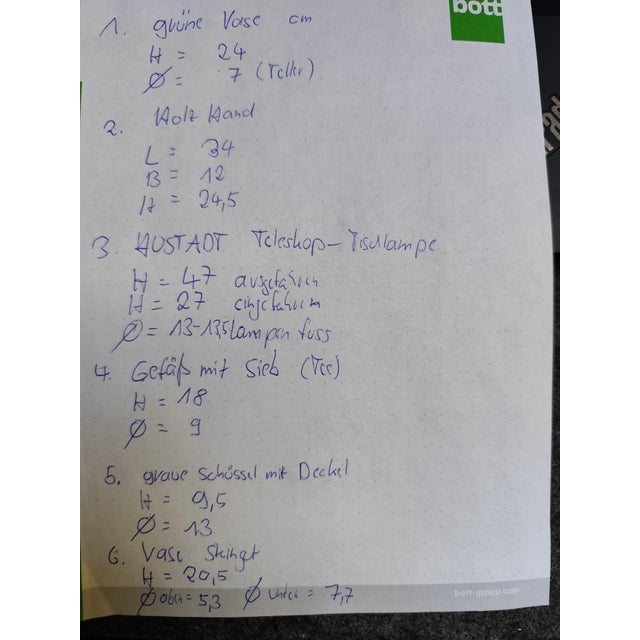 bott
1. grüne Vase cm
H = 24
Ø = 7 (Teller)
2. Holz Hand
L = 34
B = 12
H = 24,5
3. AUSTADT Teleskop-Tischlampe
H = 47 ausgefahren
H = 27 eingefahren
Ø = 13-13,5 Lampen fuss
4. Gefäß mit Sieb (Tee)
H = 18
Ø = 9
5. graue Schüssel mit Deckel
H = 9,5
Ø = 13
6. Vase Steingut
H = 20,5
Ø oben = 5,3 Ø unten = 7,7
bott-group.com